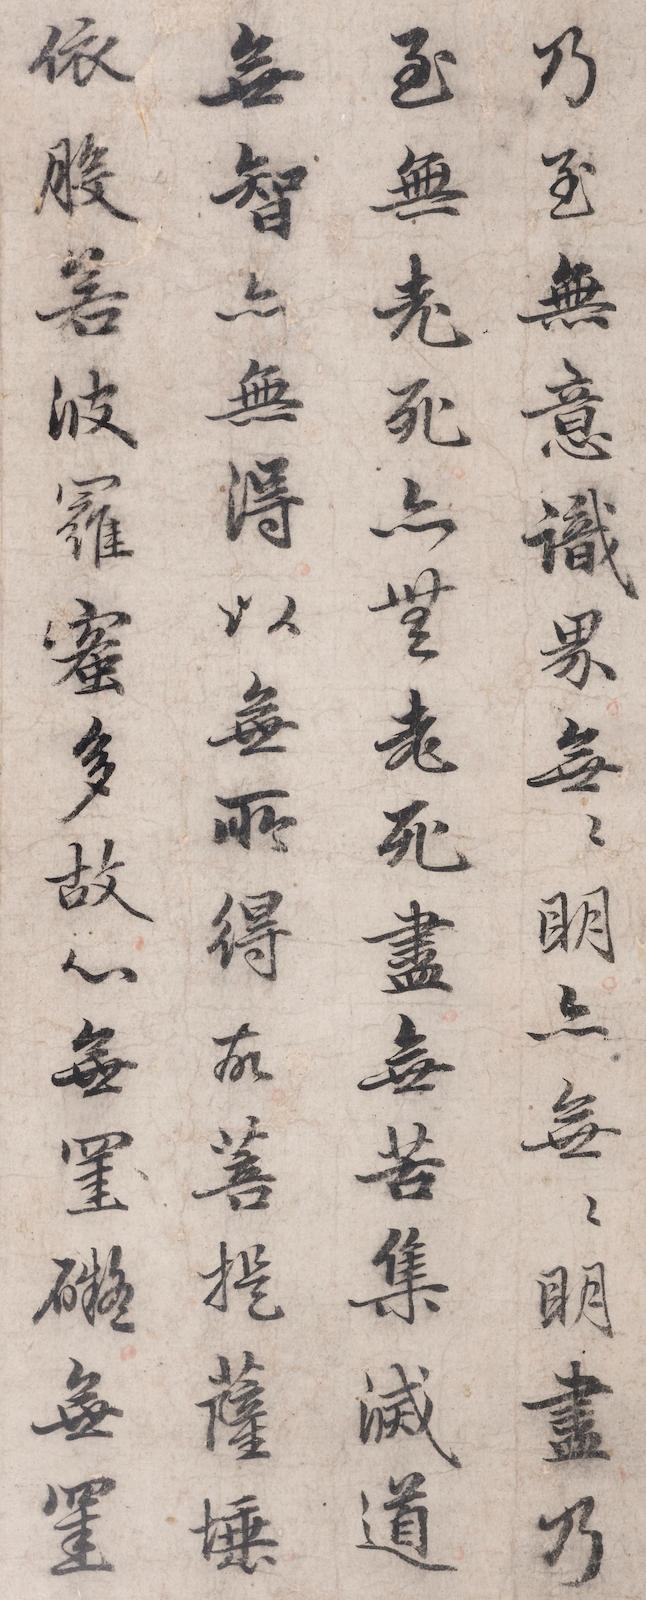 乃至無意識界無〻明亦無〻明盡乃
至無老死亦無老死盡無苦集滅道
無智亦無得以無所得故菩提薩埵
依般若波羅蜜多故心無罣礙無罣